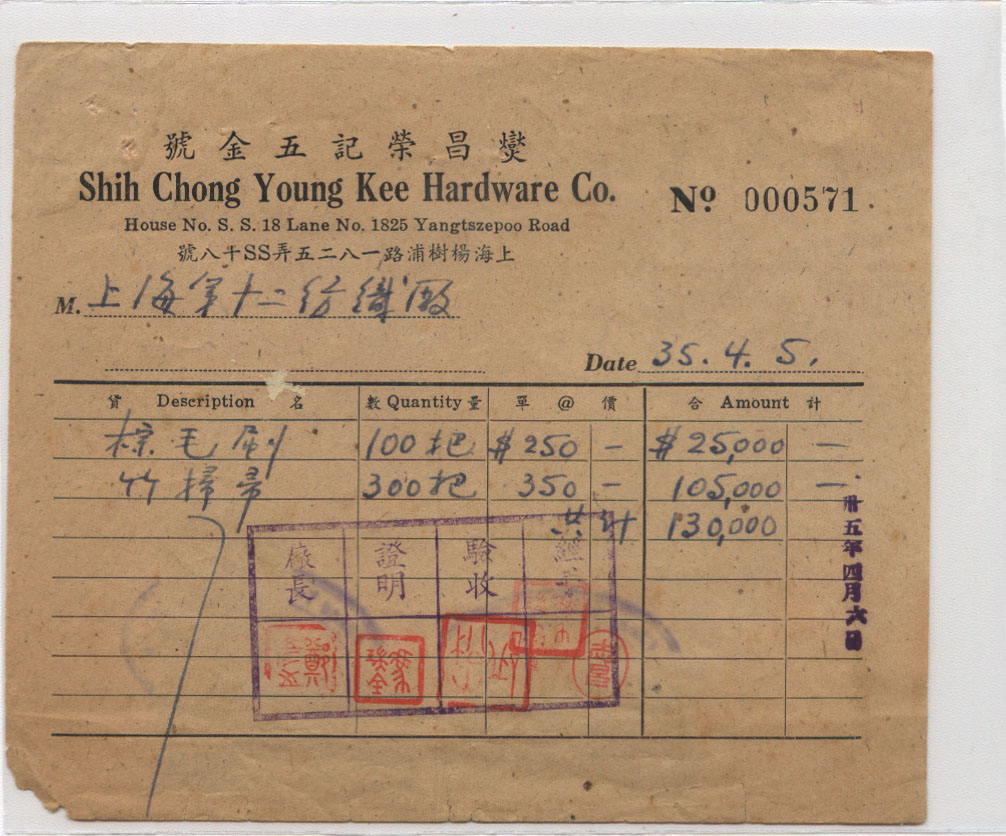 號金五記榮昌爕
Shih Chong Young Kee Hardware Co.
Nº 000571
House No. S. S. 18 Lane No. 1825 Yangtszepoo Road
號八十SS弄五二八一路浦樹楊海上
M. 上海第十二紡織廠
Date 35. 4. 5.
貨 Description 名 數 Quantity 量 單 @ 價 合 Amount 計
棕毛刷 100把 $250 — $25,000 —
竹掃帚 300把 350 — 105,000 —
共計 130,000
卅五年四月六日
廠長 證明 驗收 經手